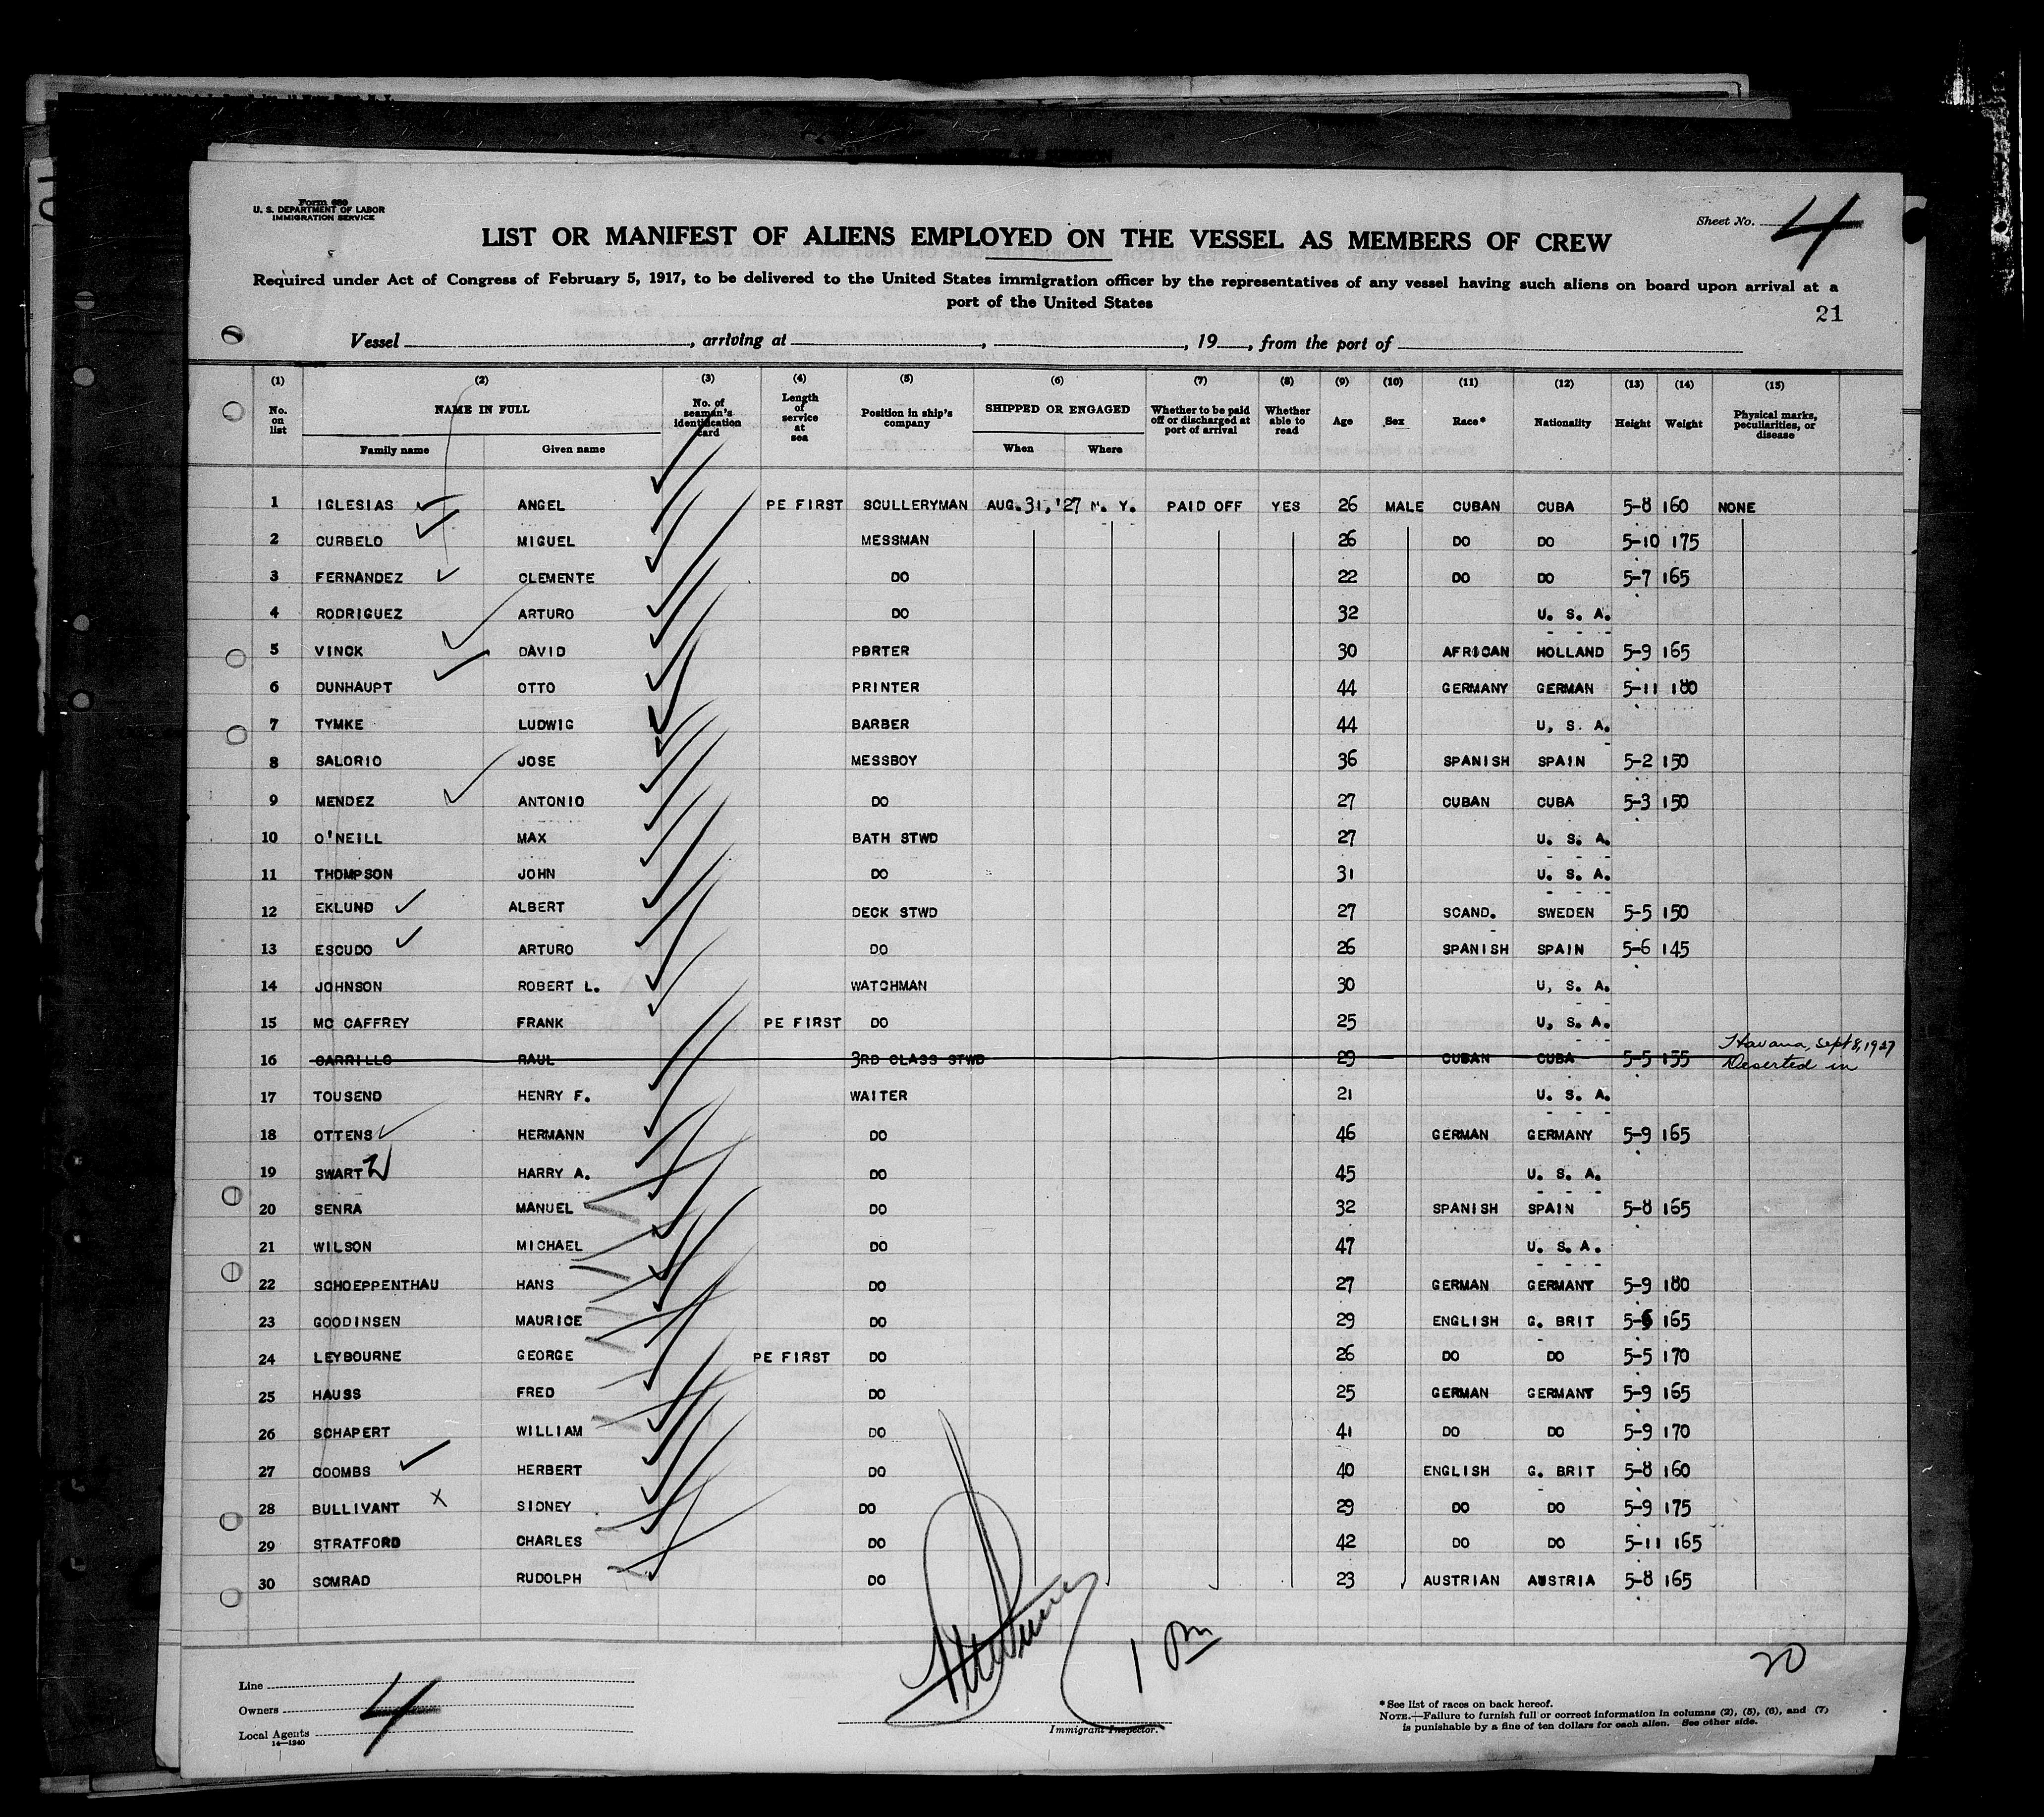 Form 680
U. S. DEPARTMENT OF LABOR
IMMIGRATION SERVICE
Sheet No. 4
LIST OR MANIFEST OF ALIENS EMPLOYED ON THE VESSEL AS MEMBERS OF CREW
Required under Act of Congress of February 5, 1917, to be delivered to the United States immigration officer by the representatives of any vessel having such aliens on board upon arrival at a
port of the United States
21
Vessel , arriving at , , 19 , from the port of
(1) (2) (3) (4) (5) (6) (7) (8) (9) (10) (11) (12) (13) (14) (15)
No. on list NAME IN FULL Family name Given name No. of seaman's identification card Length of service at sea Position in ship's company SHIPPED OR ENGAGED When Where Whether to be paid off or discharged at port of arrival Whether able to read Age Sex Race* Nationality Height Weight Physical marks, peculiarities, or disease
1 IGLESIAS ANGEL PE FIRST SCULLERYMAN AUG. 31, '27 N. Y. PAID OFF YES 26 MALE CUBAN CUBA 5-8 160 NONE
2 CURBELO MIGUEL MESSMAN 26 DO DO 5-10 175
3 FERNANDEZ CLEMENTE DO 22 DO DO 5-7 165
4 RODRIGUEZ ARTURO DO 32 U. S. A.
5 VINCK DAVID PORTER 30 AFRICAN HOLLAND 5-9 165
6 DUNHAUPT OTTO PRINTER 44 GERMANY GERMAN 5-11 180
7 TYMKE LUDWIG BARBER 44 U, S. A.
8 SALORIO JOSE MESSBOY 36 SPANISH SPAIN 5-2 150
9 MENDEZ ANTONIO DO 27 CUBAN CUBA 5-3 150
10 O'NEILL MAX BATH STWD 27 U. S. A.
11 THOMPSON JOHN DO 31 U. S. A.
12 EKLUND ALBERT DECK STWD 27 SCAND. SWEDEN 5-5 150
13 ESCUDO ARTURO DO 26 SPANISH SPAIN 5-6 145
14 JOHNSON ROBERT L. WATCHMAN 30 U, S. A.
15 MC CAFFREY FRANK PE FIRST DO 25 U, S. A.
16 CARRILLO RAUL 3RD CLASS STWD 29 CUBAN CUBA 5-5 155 Havana, Sept 8, 1927 Deserted in
17 TOUSEND HENRY F. WAITER 21 U. S. A.
18 OTTENS HERMANN DO 46 GERMAN GERMANY 5-9 165
19 SWARTZ HARRY A. DO 45 U. S. A.
20 SENRA MANUEL DO 32 SPANISH SPAIN 5-8 165
21 WILSON MICHAEL DO 47 U. S. A.
22 SCHOEPPENTHAU HANS DO 27 GERMAN GERMANY 5-9 180
23 GOODINSEN MAURICE DO 29 ENGLISH G. BRIT 5-6 165
24 LEYBOURNE GEORGE PE FIRST DO 26 DO DO 5-5 170
25 HAUSS FRED DO 25 GERMAN GERMANY 5-9 165
26 SCHAPERT WILLIAM DO 41 DO DO 5-9 170
27 COOMBS HERBERT DO 40 ENGLISH G. BRIT 5-8 160
28 BULLIVANT X SIDNEY DO 29 DO DO 5-9 175
29 STRATFORD CHARLES DO 42 DO DO 5-11 165
30 SOMRAD RUDOLPH DO 23 AUSTRIAN AUSTRIA 5-8 165
20
Line
Owners 4
Local Agents
14—1240
Immigrant Inspector.
* See list of races on back hereof.
NOTE.—Failure to furnish full or correct information in columns (2), (5), (6), and (7)
is punishable by a fine of ten dollars for each alien. See other side.